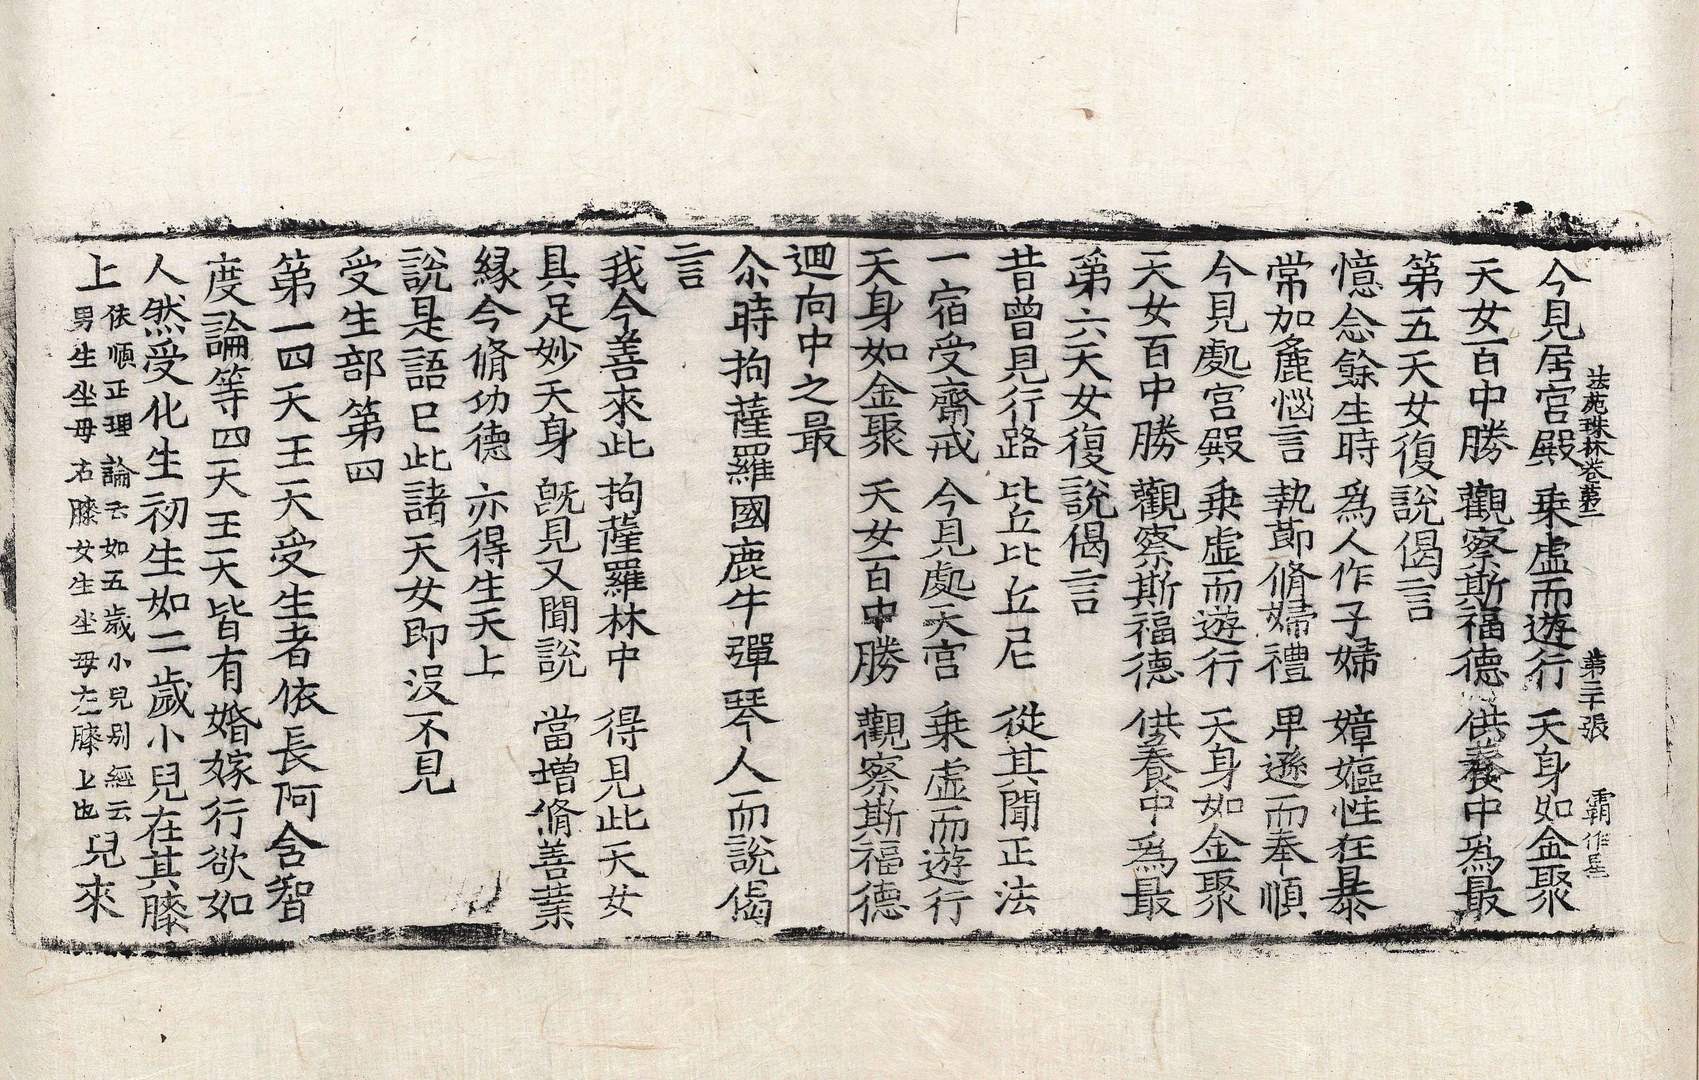 法苑珠林卷第三　第三十張　霸
今見居宮殿　乗虛而遊行　天身如金聚
天女百中勝　觀察斯福德　供養中爲最
第五天女復說偈言
憶念餘生時　爲人作子婦　嫜嫗性在暴
常加麁惱言　執節脩婦禮　卑遜而奉順
今見處宮殿　乗虛而遊行　天身如金聚
天女百中勝　觀察斯福德　供養中爲最
第六天女復說偈言
昔曾見行路　比丘比丘尼　從其聞正法
一宿受齋戒　今見處天宮　乗虛而遊行
天身如金聚　天女百中勝　觀察斯福德
迴向中之最
尒時拘薩羅國鹿牛彈琴人而說偈
言
我今善來此　拘薩羅林中　得見此天女
具足妙天身　旣見又聞說　當增脩善業
緣今脩功德　亦得生天上
說是語已此諸天女即沒不見
受生部第四
第一四天王天受生者依長阿含智
度論等四天王天皆有婚嫁行欲如
人然受化生初生如二歲小兒在其膝
上依順正理論云如五歲小兒別經云
男生坐母右膝女生坐母左膝上也兒來